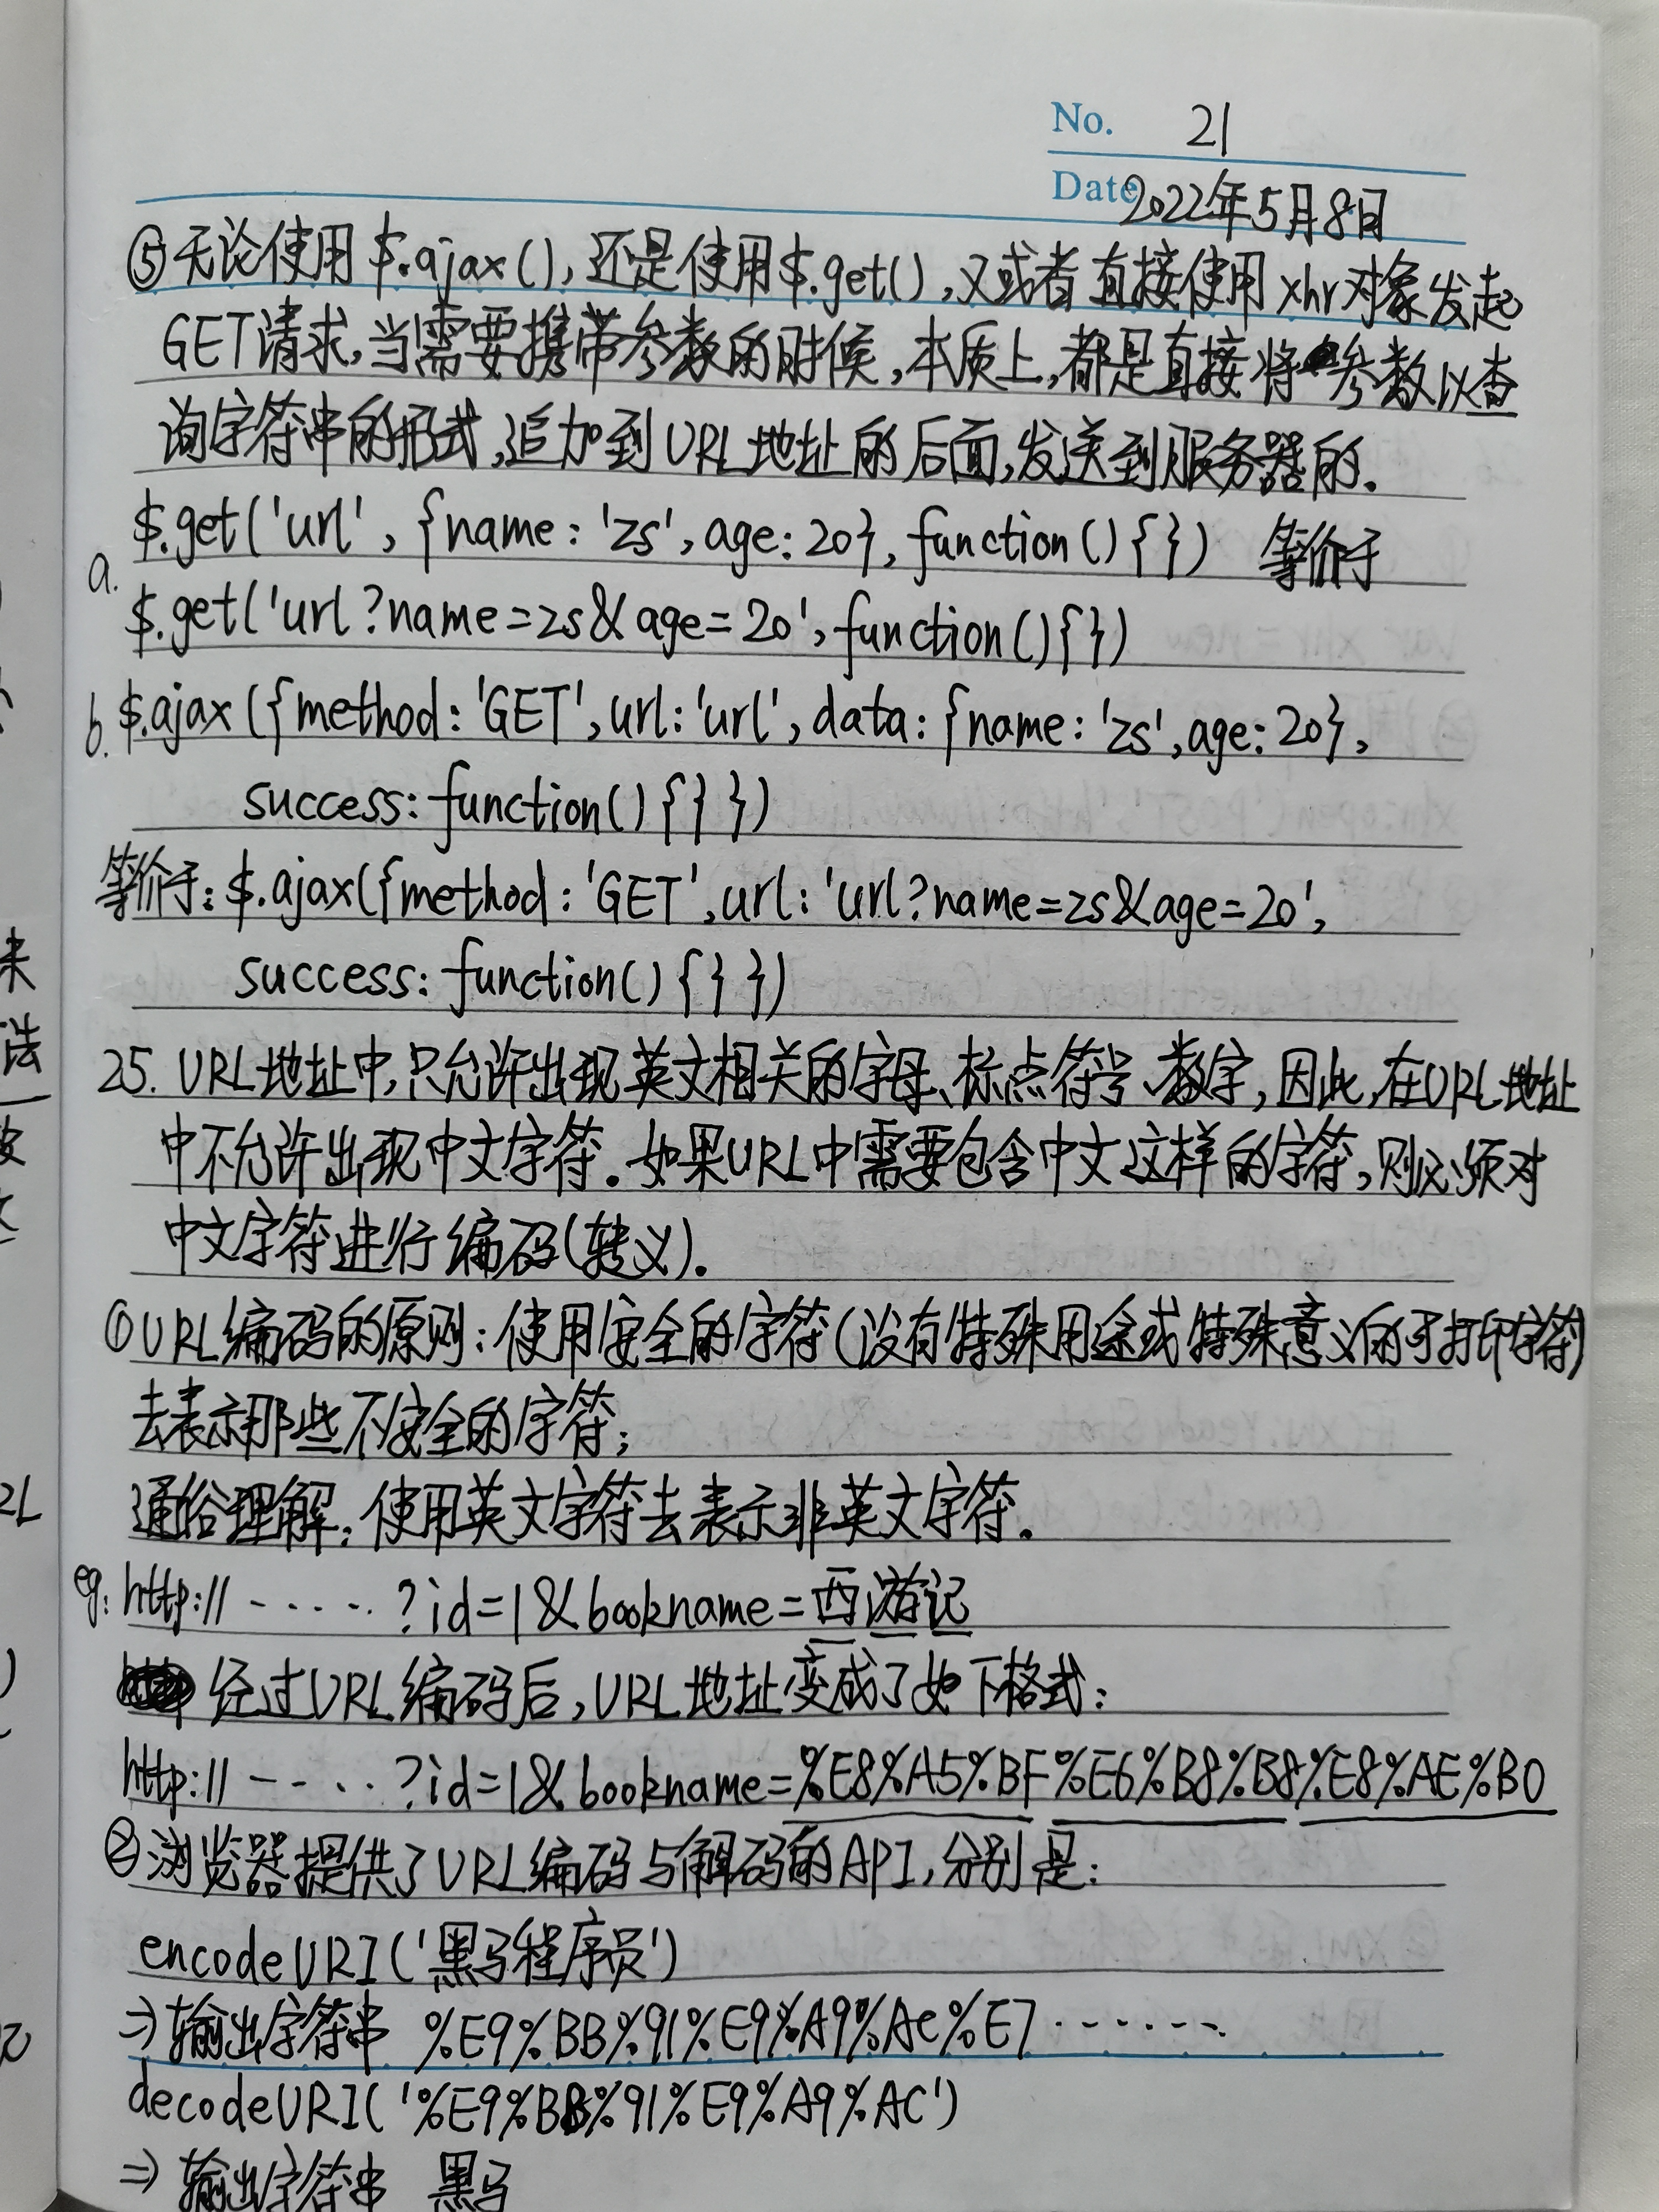 No. 21
Date 2022年5月8日
⑤无论使用$.ajax(),还是使用$.get(),又或者直接使用xhr对象发起
GET请求,当需要携带参数的时候,本质上,都是直接将参数以查
询字符串的形式,追加到URL地址的后面,发送到服务器的.
$.get('url', {name: 'zs', age: 20}, function(){}) 等价于
a.
$.get('url?name=zs&age=20', function(){})
b. $.ajax({method: 'GET', url: 'url', data: {name: 'zs', age: 20},
success: function(){}})
等价于: $.ajax({method: 'GET', url: 'url?name=zs&age=20',
success: function(){}})
25. URL地址中,只允许出现英文相关的字母、标点符号、数字,因此,在URL地址
中不允许出现中文字符。如果URL中需要包含中文这样的字符,则必须对
中文字符进行编码(转义).
①URL编码的原则:使用安全的字符(没有特殊用途或特殊意义的可打印字符)
去表示那些不安全的字符;
通俗理解:使用英文字符去表示非英文字符.
eg: http://-····?id=1&bookname=西游记
经过URL编码后,URL地址变成了如下格式:
http://--···?id=1&bookname=%E8%A5%BF%E6%B8%B8%E8%AE%B0
②浏览器提供了URL编码与解码的API,分别是:
encodeURI('黑马程序员')
⇒ 输出字符串 %E9%BB%91%E9%A9%AC%E7·······
decodeURI('%E9%BB%91%E9%A9%AC')
⇒ 输出字符串 黑马
来
法
2L